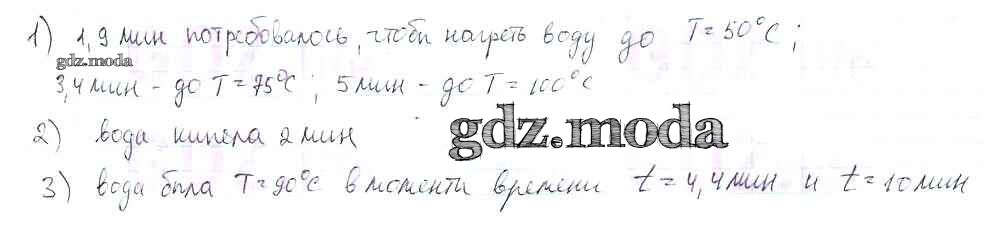 1) 1,9 мин потребовалось, чтобы нагреть воду до T=50°C;
gdz.moda
3,4 мин - до T=75°C; 5 мин - до T=100°C
2) вода кипела 2 мин
gdz.moda
3) вода была T=90°C в моменты времени t=4,4 мин и t=10 мин